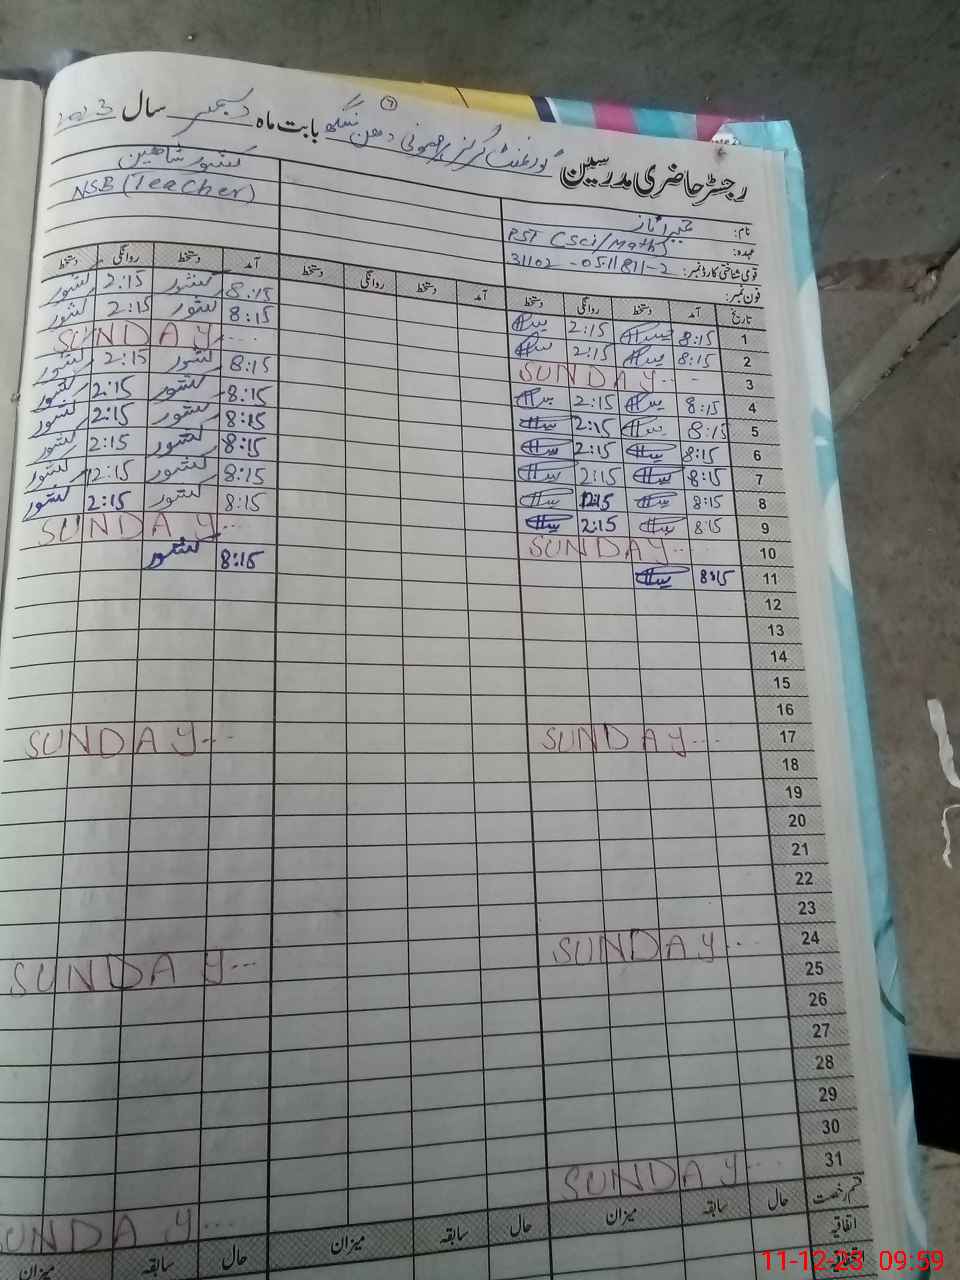 رجسٹر حاضری مدرسین گورنمنٹ گرلز پرائمری دھن سنگھ بابت ماہ دسمبر سال 2023
نام:
عہدہ: PST (Sci/Maths)
قومی شناختی کارڈ نمبر: 31102-0511811-2
فون نمبر:
کشور شاھین
NSB (Teacher)
تاریخ آمد دستخط روانگی دستخط آمد دستخط روانگی دستخط آمد دستخط روانگی دستخط
1 8:15 2:15 8:15 کشور 2:15 کشور
2 8:15 2:15 8:15 کشور 2:15 کشور
3 SUNDAY... SUNDAY...
4 8:15 2:15 8:15 کشور 2:15 کشور
5 8:15 2:15 8:15 کشور 2:15 کشور
6 8:15 2:15 8:15 کشور 2:15 کشور
7 8:15 2:15 8:15 کشور 2:15 کشور
8 8:15 2:15 8:15 کشور 2:15 کشور
9 8:15 2:15 8:15 کشور 2:15 کشور
10 SUNDAY... SUNDAY...
11 8:15 8:15 کشور
12
13
14
15
16
17 SUNDAY... SUNDAY...
18
19
20
21
22
23
24 SUNDAY... SUNDAY...
25
26
27
28
29
30
31 SUNDAY... SUNDAY...
قسم رخصت حال سابقہ میزان حال سابقہ میزان حال سابقہ میزان
اتفاقیہ
11-12-23 09:59